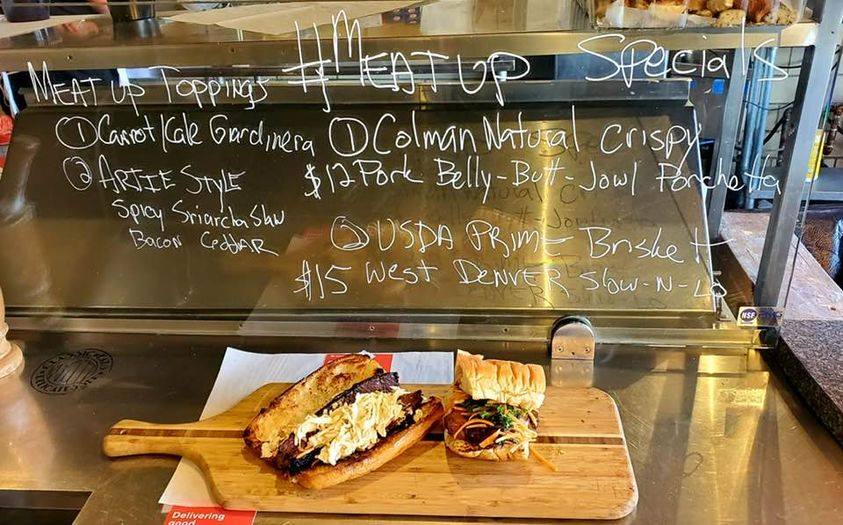 MEAT UP TOPPINGS
① Carrot/Kale Giardinera
② ARTIE STYLE
Spicy Sriarcha Slaw
Bacon Ceddar
#MEATUP Specials
① Colman Natural Crispy
$12 Pork Belly-Butt-Jowl Porchetta
② USDA PRIME Brisket
$15 West DENVER Slow-N-Lo
NSF
Delivering
good